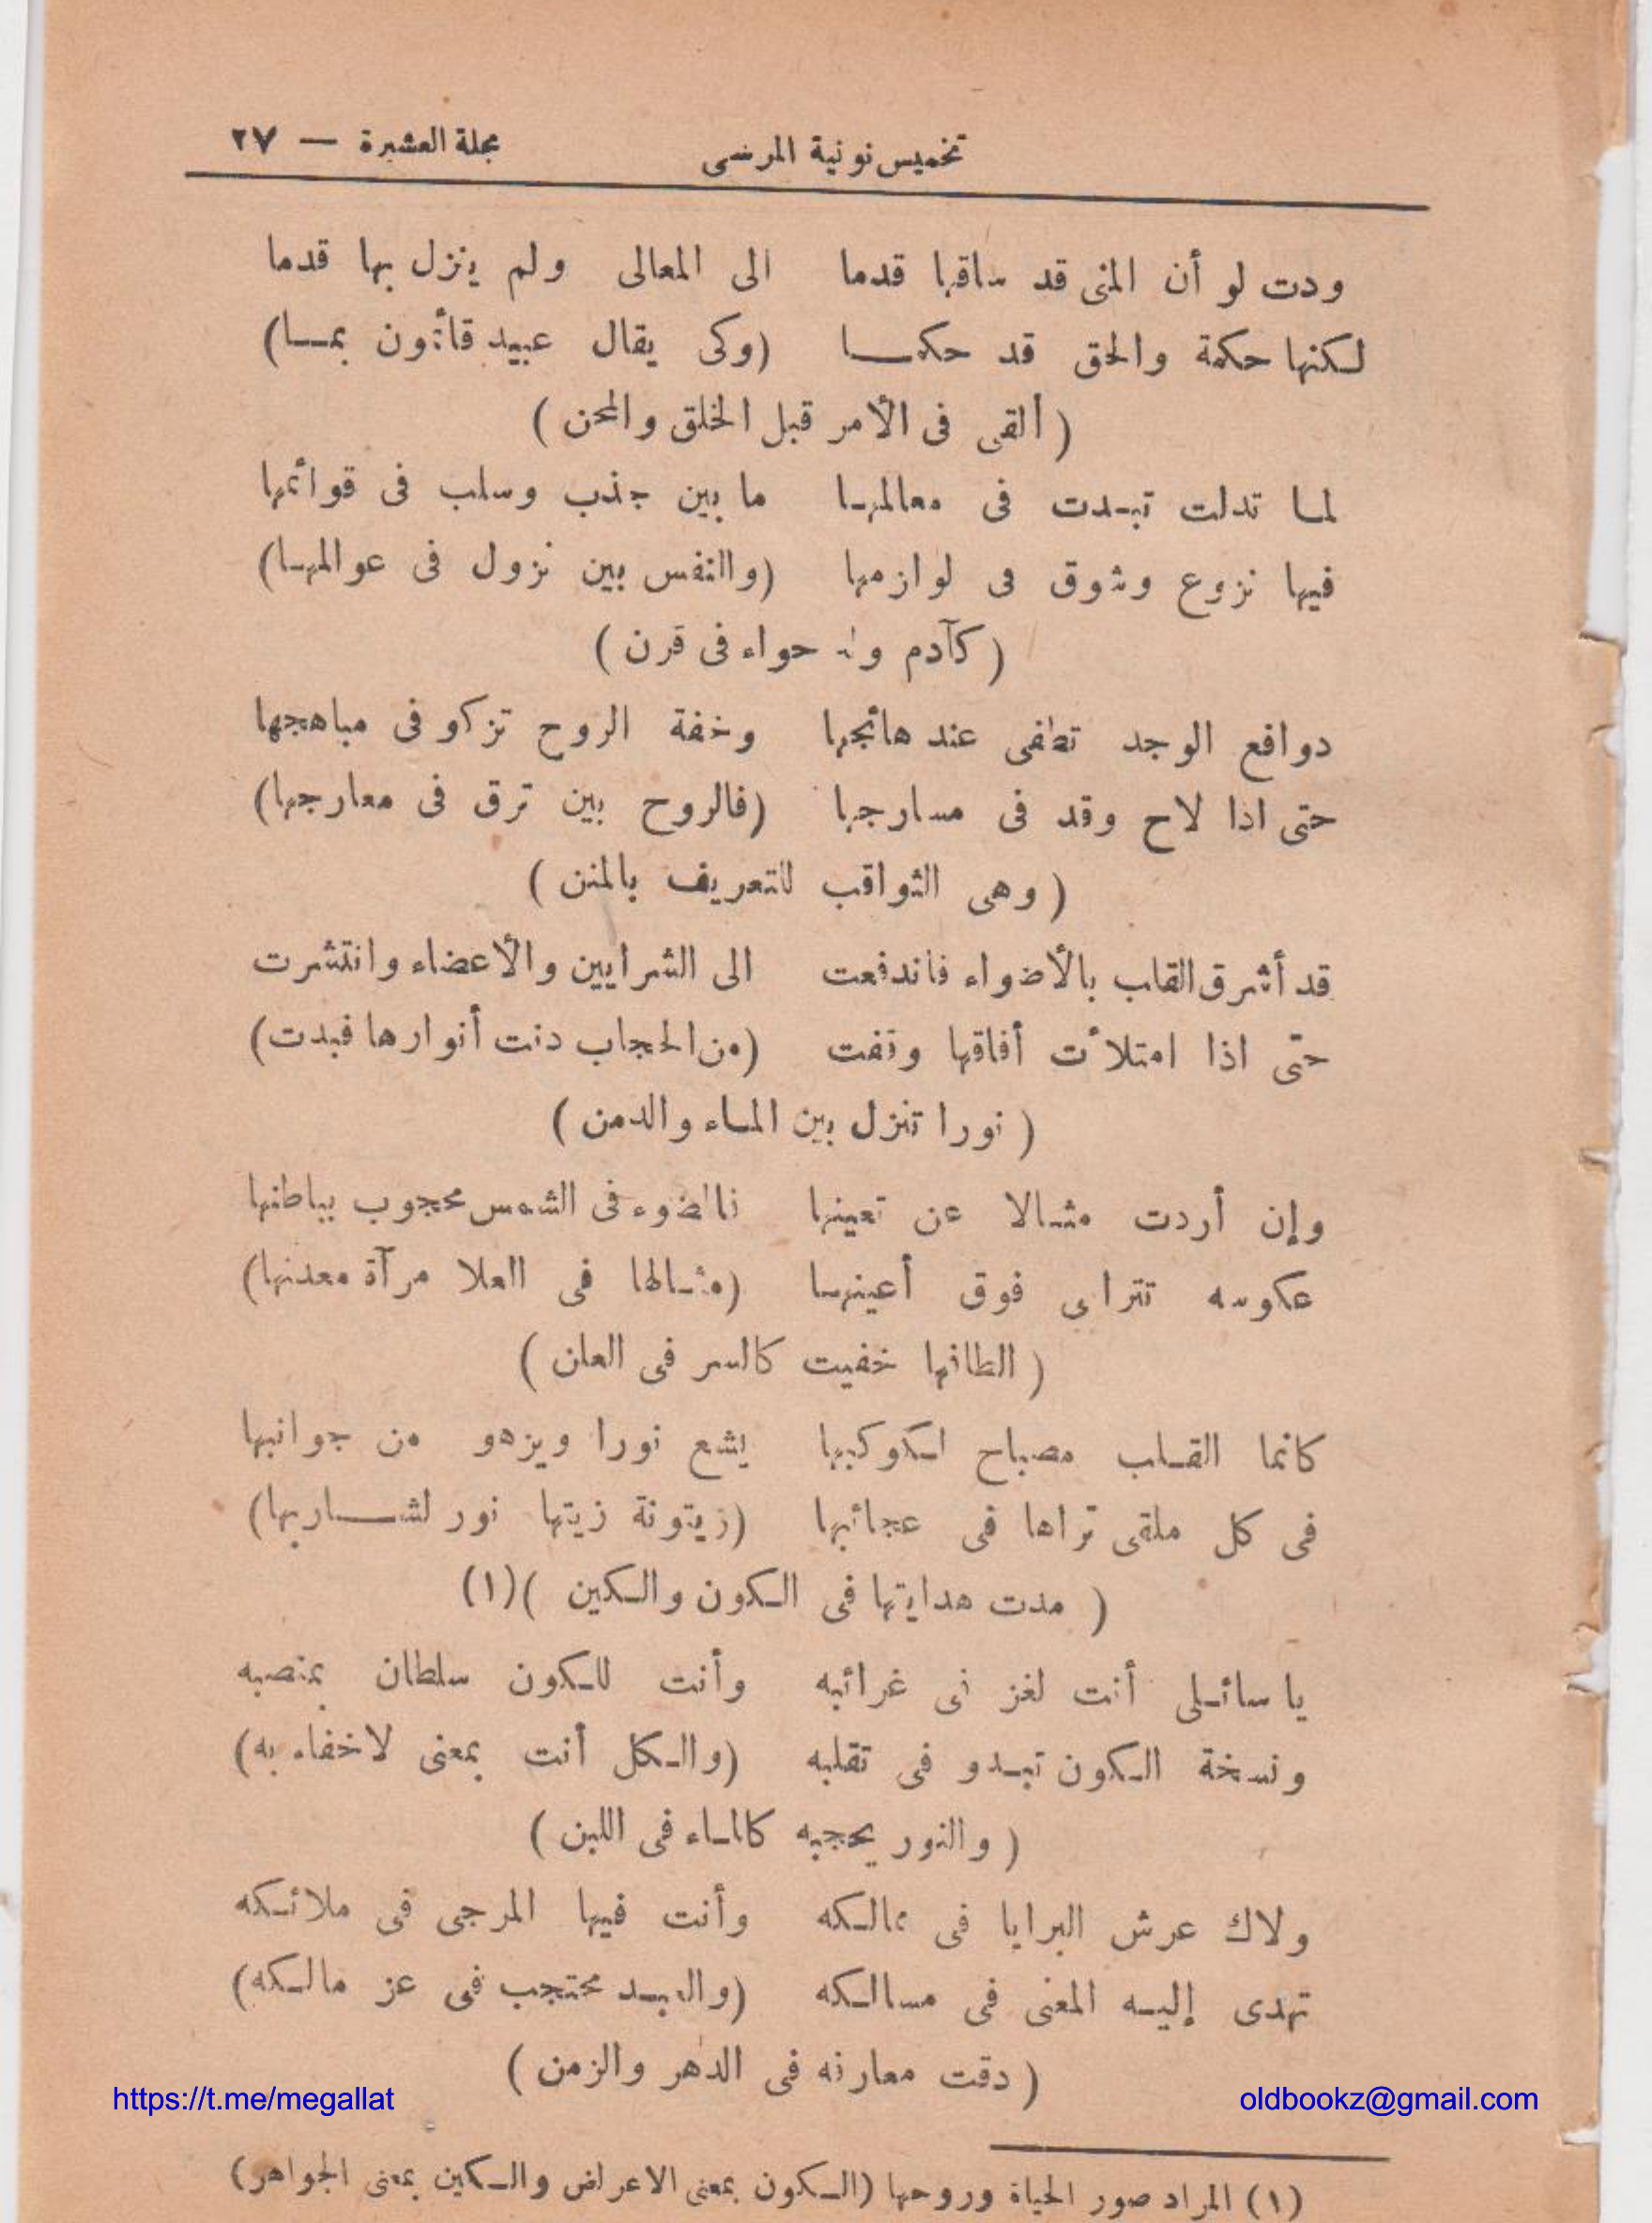 تخميس نونية المرسى مجلة العشيرة — ٢٧
ودت لو أن المنى قد ساقها قدما الى المعالى ولم ينزل بها قدما
لكنها حكمة والحق قد حكما (وكى يقال عبيد قائمون بما)
( ألقى فى الأمر قبل الخلق والمحن )
لما تدلت تبدت فى معالمها ما بين جذب وسلب فى قوائمها
فيها نزوع وشوق فى لوازمها (والنفس بين نزول فى عوالمها)
( كآدم وله حواء فى قرن )
دوافع الوجد تطفى عند هائجها وخفة الروح تزكو فى مباهجها
حتى اذا لاح وقد فى مسارجها (فالروح بين ترق فى معارجها)
( وهى الثواقب للتعريف بالمنن )
قد أشرق القلب بالأضواء فاندفعت الى الشرايين والأعضاء وانتشرت
حتى اذا امتلأت أفاقها وتفت (من الحجاب دنت أنوارها فبدت)
( نورا تنزل بين الماء والدمن )
وإن أردت مثالا عن تعينها فالضوء فى الشمس محجوب بباطنها
عكوسه تتراى فوق أعينها (مثالها فى العلا مرآة معدنها)
( الطافها خفيت كالسر فى العلن )
كانما القلب مصباح لكوكبها يشع نورا ويزهو من جوانبها
فى كل ملقى تراها فى عجائبها (زيتونة زيتها نور لشاربها)
( مدت هدايتها فى الكون والكين )(١)
يا سائلى أنت لغز فى غرائبه وأنت للكون سلطان بمنصبه
ونسخة الكون تبدو فى تقلبه (والكل أنت بمعنى لاخفاء به)
( والنور يحجبه كالماء فى اللبن )
ولاك عرش البرايا فى ممالكه وأنت فيها المرجى فى ملائكه
تهدى إليه المعنى فى مسالكه (والعبد محتجب فى عز مالكه)
( دقت معارفه فى الدهر والزمن )
https://t.me/megallat oldbookz@gmail.com
(١) المراد صور الحياة وروحها (الكون بمعنى الاعراض والكين بمعنى الجواهر)